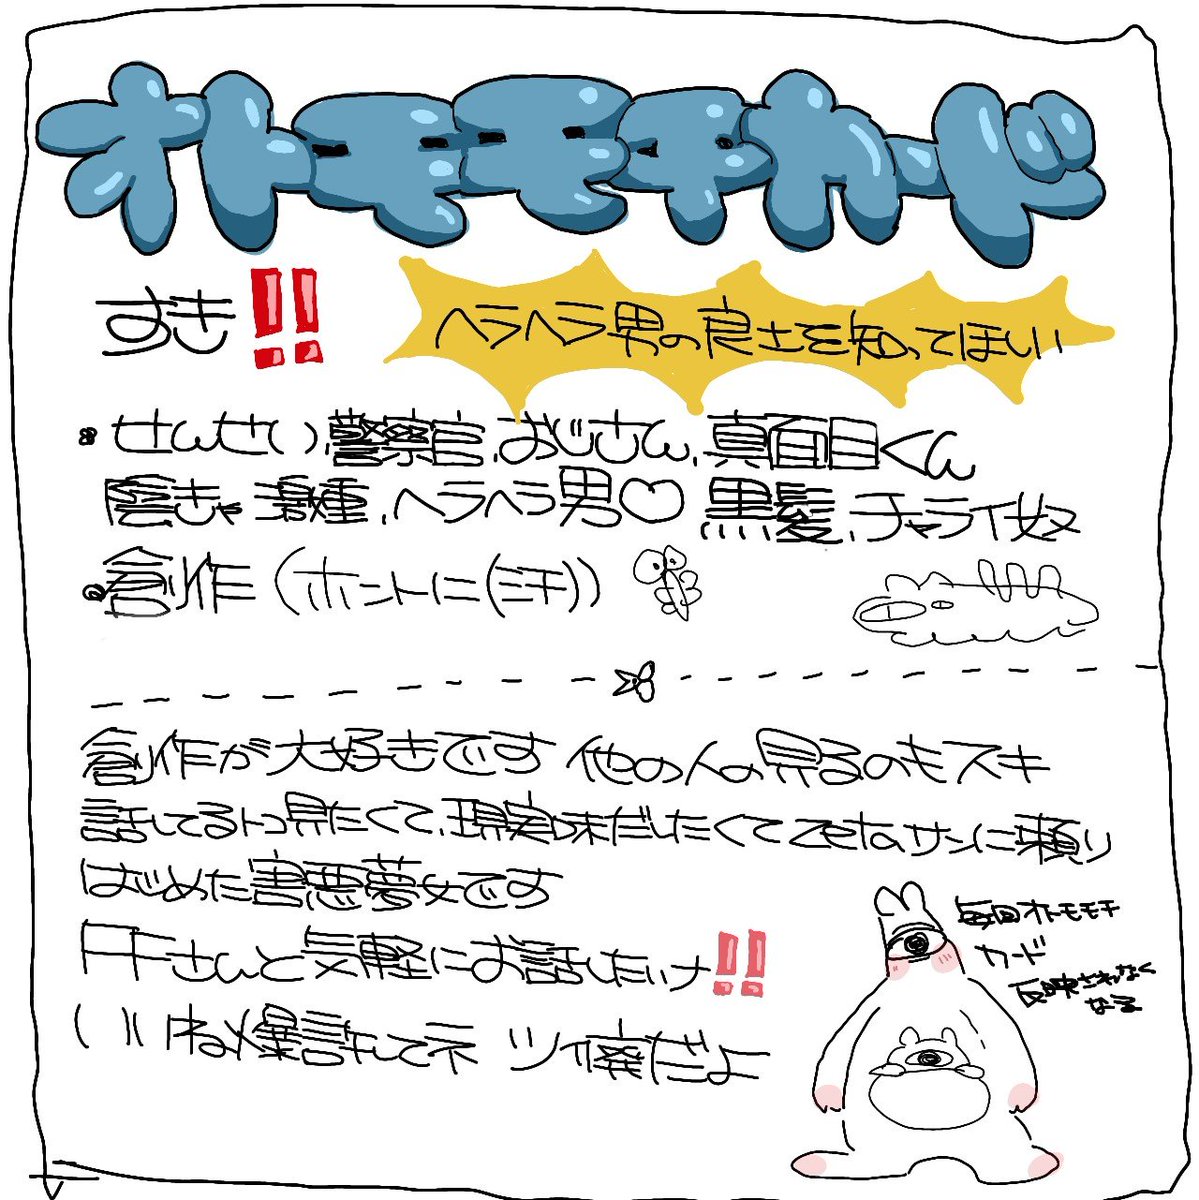 オトモモチカード
すき!!
ヘラヘラ男の良さを知ってほしい
せんせい、警察官、おじさん、真面目くん
陰きゃ 激重、ヘラヘラ男♡ 黒髪、チャライ奴
創作(ホントに(汗))
創作が大好きです 他の人の見るのもスキ
話してるトコ見たくて、現実味だしたくて てせねサンに頼り
はじめた害悪夢女です
FFさんと気軽にお話したいナ!!
いいね爆許してネ ツイ廃だよ
毎回オトモモチ
カード
反映されなく
なる